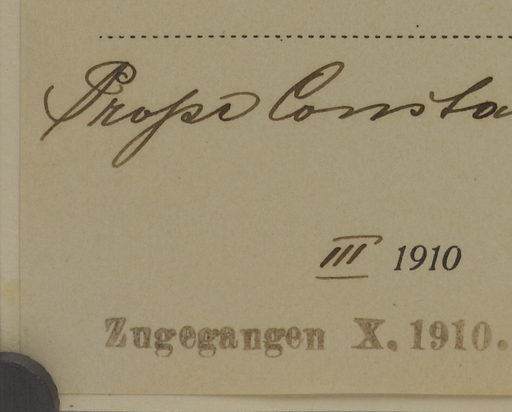 Prope Consta
III 1910
Zugegangen X. 1910.